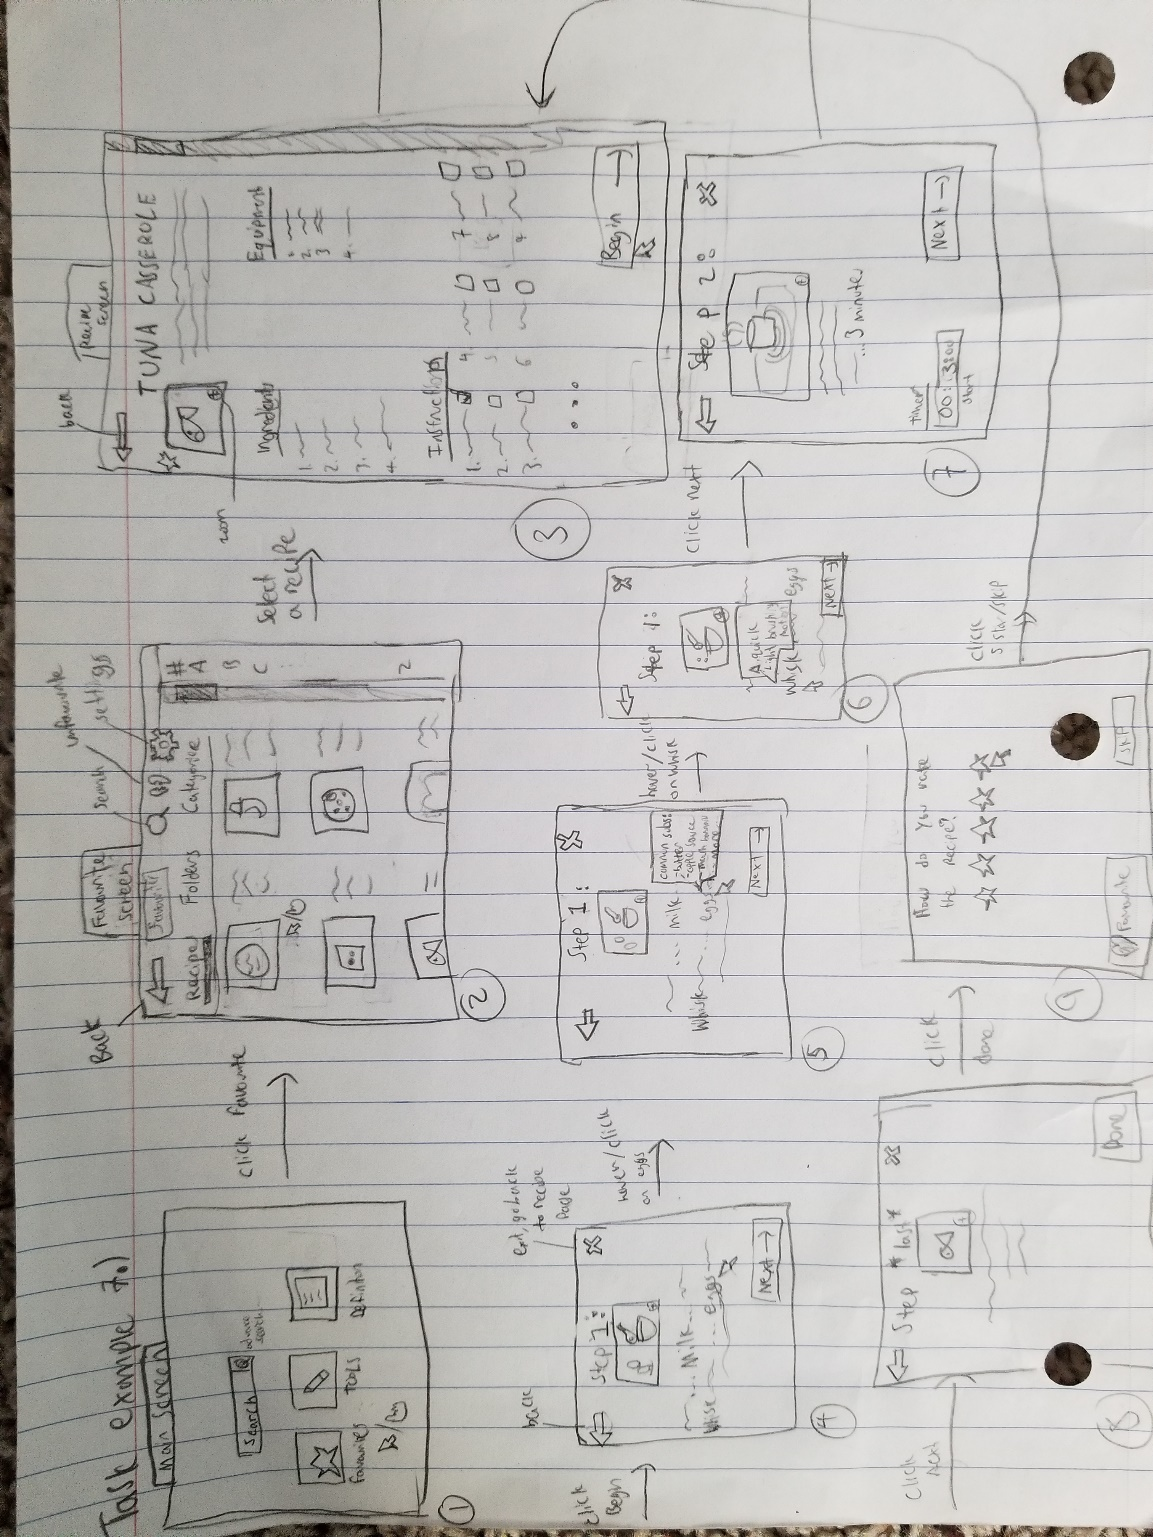 Task example 7.)
Main Screen
Search
advance search
Favourites
TOOLS
Definition
1
click favourite
Back
Favourite Screen
search
unfavourite
settings
Favourite
Recipe
Folders
Categories
#
A
B
C
Z
2
Select a recipe
back
Recipe Screen
zoom
TUNA CASSEROLE
Ingredients
1.
2.
3.
4.
Equipment
1.
2.
3
4.
Instructions
1.
2.
3.
4.
5
6
7
8
9
Begin →
3
click Begin
back
exit, go back to recipe page
Step 1:
... Milk
Whisk ... eggs
Next →
4
hover/click on eggs
Step 1:
... Milk
Whisk ... eggs
common subs:
- butter
- apple sauce
- mash banana
more...
Next →
5
hover/click on whisk
Step 1:
A quick light brushing motion
Whisk eggs
Next →
6
click next
Step 2:
... 3 minutes
timer
00:3:00
start
Next →
7
click next
Step *last*
Done
8
click done
How do you rate the recipe?
Favourite
Skip
9
click 5 star/skip